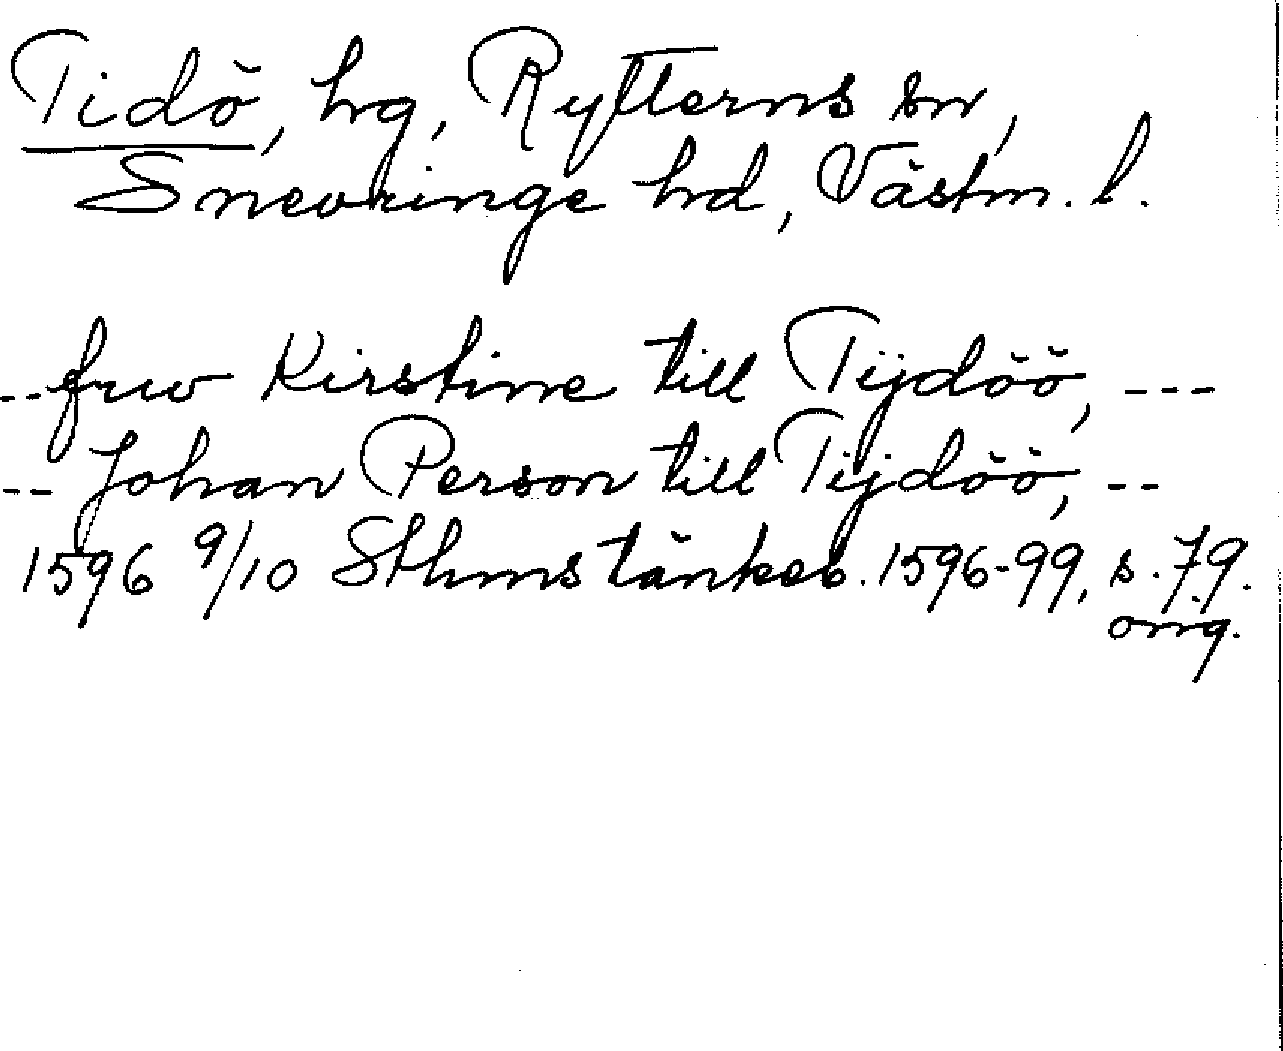 Tidö, hg, Rytterns sn,
Snevringe hd, Västm. l.
-- fruw Kirstine till Tijdöö, ---
-- Johan Person till Tijdöö, --
1596 9/10 Sthms tänkeb. 1596-99, s. 79.
orig.